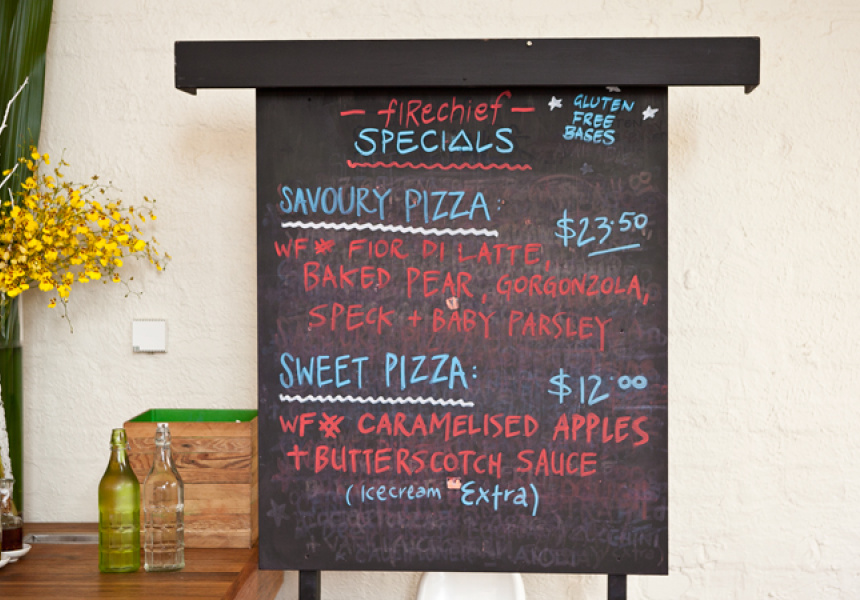 — fIRechief —
SPECIALS
GLUTEN
FREE
BASES
SAVOURY PIZZA:
$23.50
WF FIOR DI LATTE,
BAKED PEAR, GORGONZOLA,
SPECK + BABY PARSLEY
SWEET PIZZA:
$12.00
WF CARAMELISED APPLES
+ BUTTERSCOTCH SAUCE
(Icecream Extra)